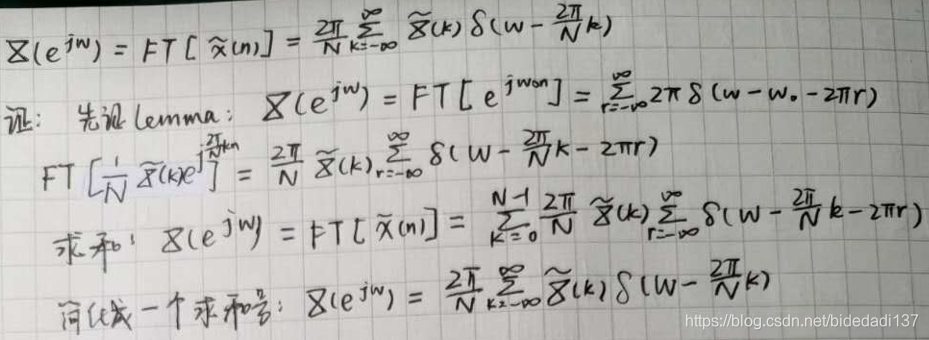 X(e^{jw}) = FT[x̃(n)] = \frac{2π}{N} \sum_{k=-∞}^{∞} X̃(k) δ(w - \frac{2π}{N}k)
证: 先证 lemma: X(e^{jw}) = FT[e^{jw₀n}] = \sum_{r=-∞}^{∞} 2π δ(w - w₀ - 2πr)
FT[\frac{1}{N} X̃(k)e^{j\frac{2π}{N}kn}] = \frac{2π}{N} X̃(k) \sum_{r=-∞}^{∞} δ(w - \frac{2π}{N}k - 2πr)
求和: X(e^{jw}) = FT[x̃(n)] = \sum_{k=0}^{N-1} \frac{2π}{N} X̃(k) \sum_{r=-∞}^{∞} δ(w - \frac{2π}{N}k - 2πr)
简化成一个求和号: X(e^{jw}) = \frac{2π}{N} \sum_{k=-∞}^{∞} X̃(k) δ(w - \frac{2π}{N}k)
https://blog.csdn.net/bidedadi137